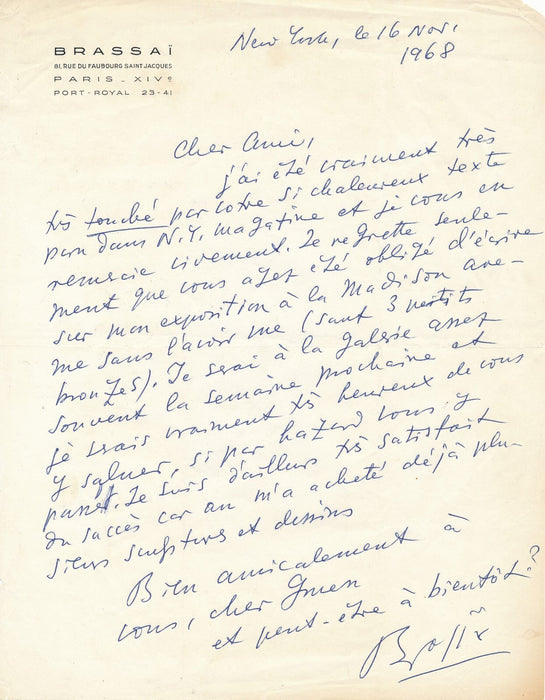 BRASSAÏ
81, RUE DU FAUBOURG SAINT JACQUES
PARIS _ XIVe
PORT-ROYAL 23-41
New York, le 16 Nov.
1968
Cher Ami,
j'ai été vraiment très
très touché par votre si chaleureux texte
paru dans N.Y. magazine et je vous en
remercie vivement. Je regrette seule-
ment que vous ayez été obligé d'écrire
sur mon exposition à la Madison ave-
nue sans l'avoir vue (sauf 3 petits
bronzes). Je serai à la galerie assez
souvent la semaine prochaine et
je serais vraiment très heureux de vous
y saluer, si par hazard vous y
passez. Je suis d'ailleurs très satisfait
du succès car on m'a acheté déjà plu-
sieurs sculptures et dessins
Bien amicalement à
vous, cher Gruen
et peut-être à bientôt?
Brassaï